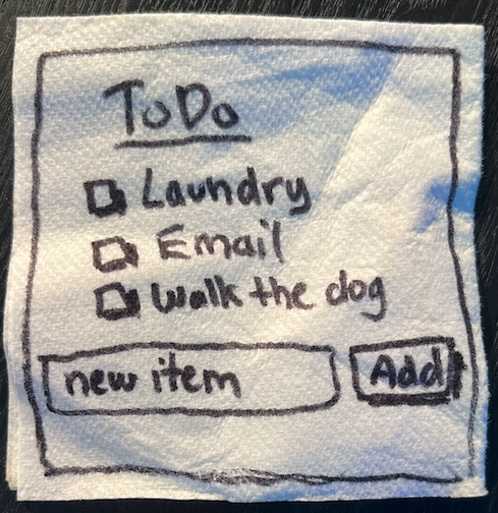 ToDo
Laundry
Email
Walk the dog
new item Add